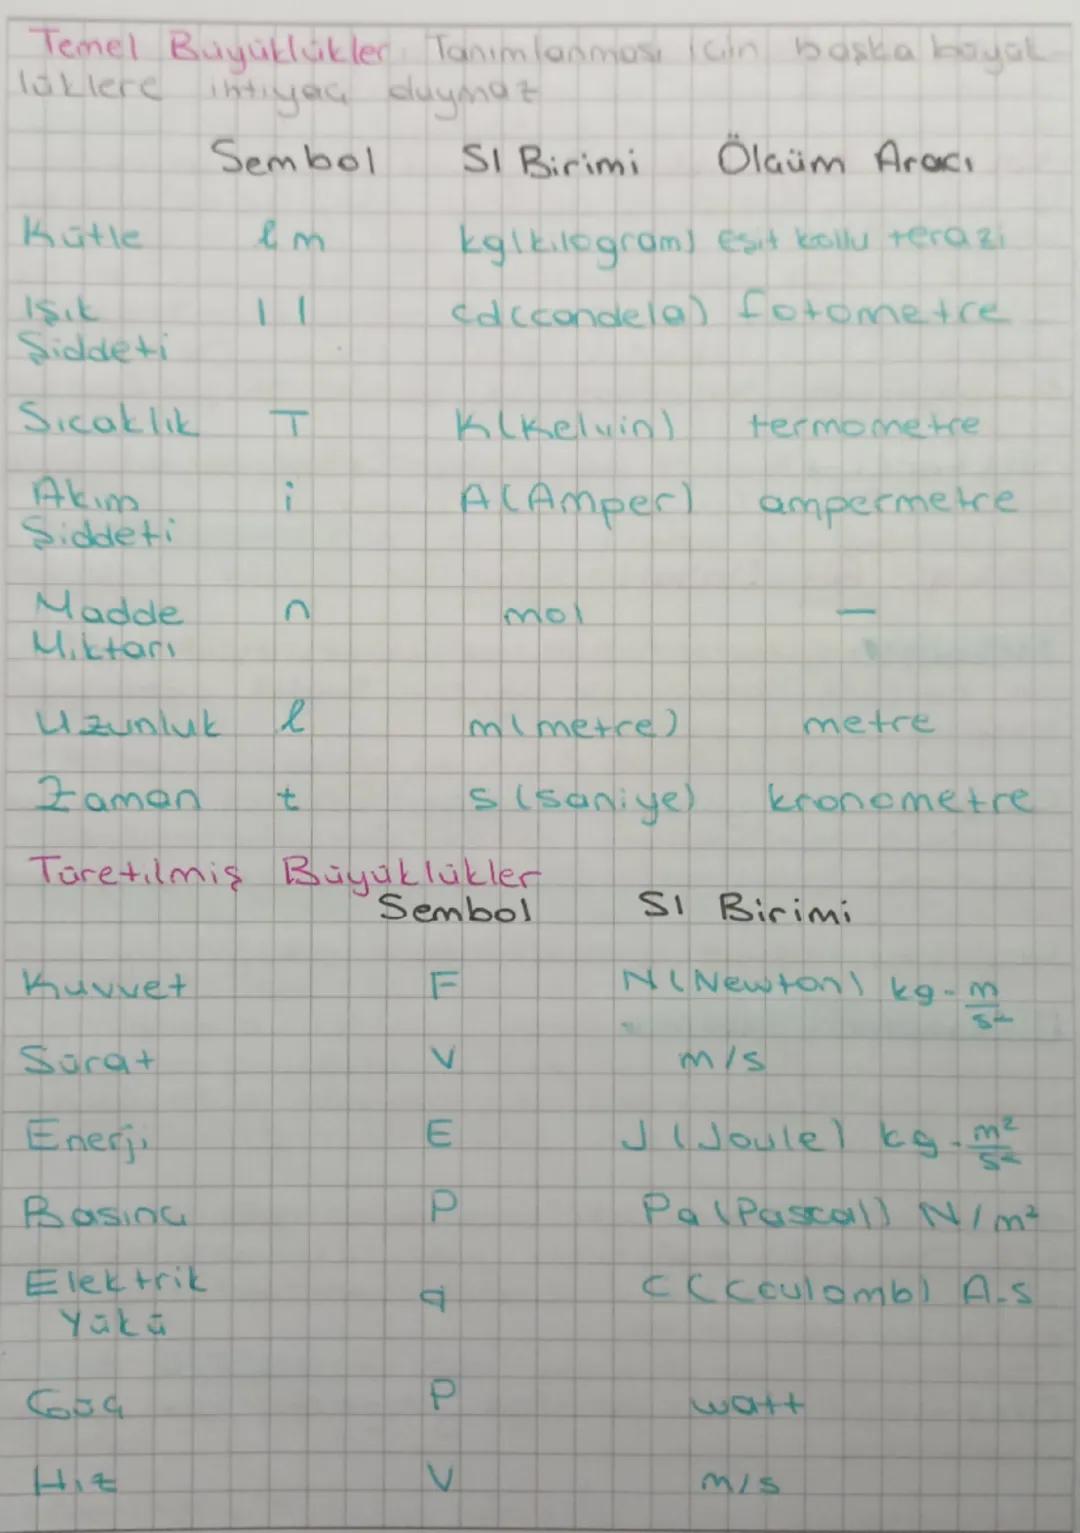 Temel Büyüklükler: Tanımlanması için başka büyük
lüklere ihtiyaç duymaz
Sembol SI Birimi Ölçüm Aracı
Kütle l m kg(kilogram) eşit kollu terazi
Işık I I cd(candela) fotometre
Şiddeti
Sıcaklık T K(Kelvin) termometre
Akım i A(Amper) ampermetre
Şiddeti
Madde n mol —
Miktarı
Uzunluk l m(metre) metre
Zaman t s(saniye) kronometre
Türetilmiş Büyüklükler
Sembol SI Birimi
Kuvvet F N(Newton) kg.m/s²
Sürat V m/s
Enerji E J(Joule) kg.m²/s²
Basınç P Pa(Pascal) N/m²
Elektrik q C(Coulomb) A.s
Yükü
Güç P watt
Hız V m/s